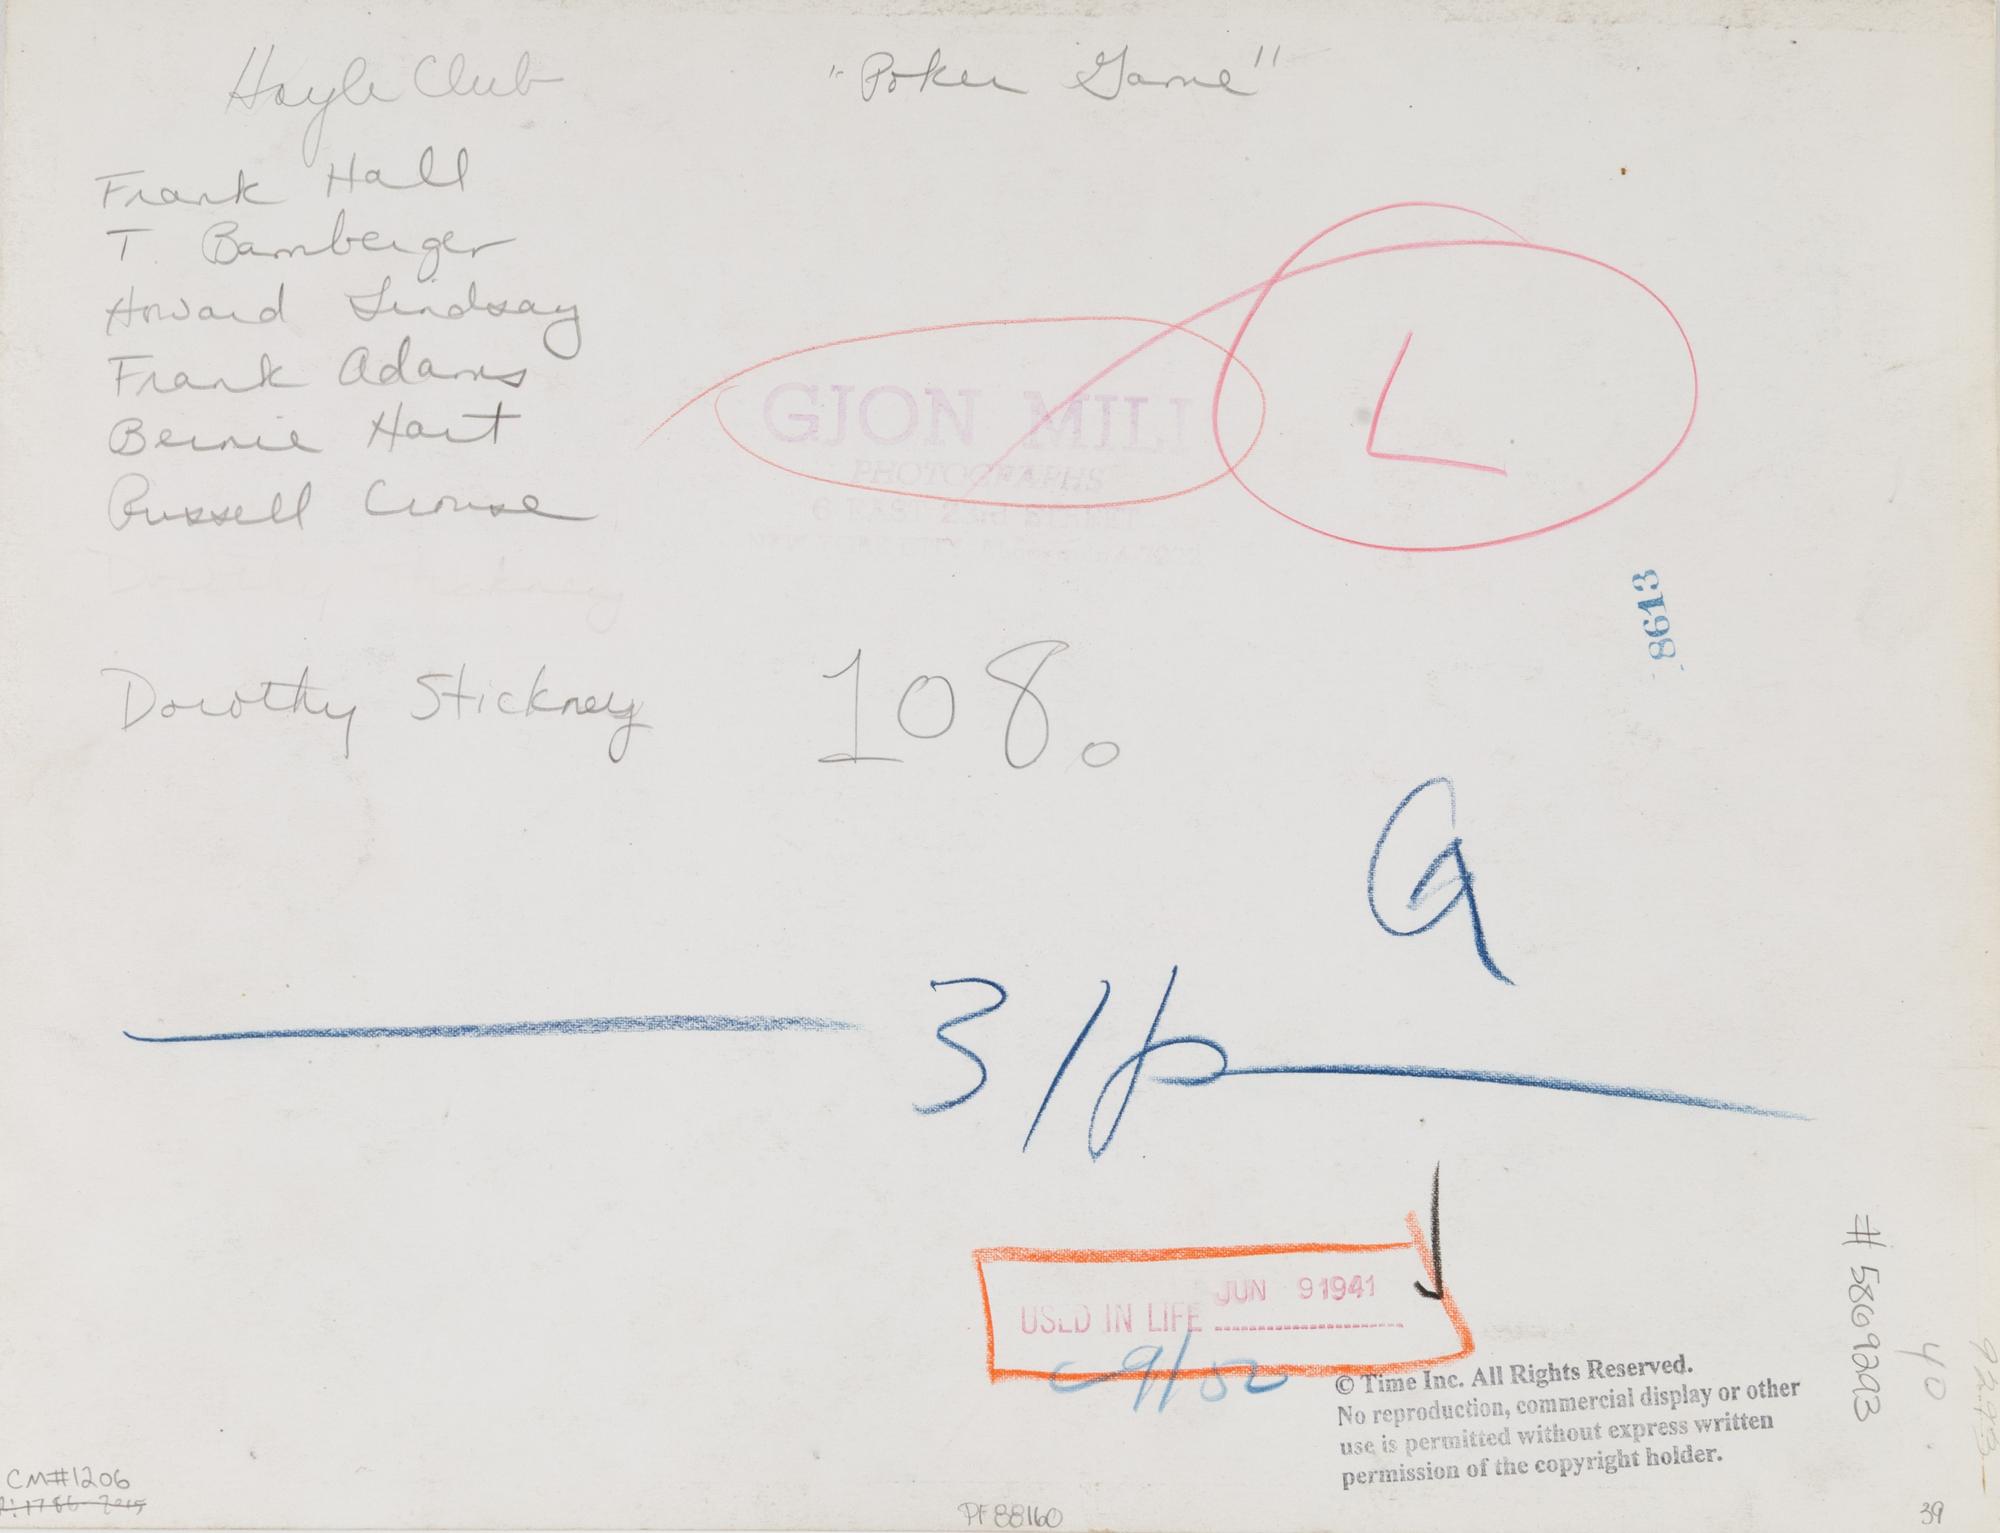 Hoyle Club
"Poker Game"
Frank Hall
T. Bamberger
Howard Lindsay
Frank Adams
Bernie Hart
Russell Crouse
Dorothy Stickney
GJON MILI
PHOTOGRAPHS
6 EAST 23rd STREET
NEW YORK CITY
L
8613
Dorothy Stickney
108.
a
3/p
USED IN LIFE JUN 9 1941
9/52
© Time Inc. All Rights Reserved.
No reproduction, commercial display or other
use is permitted without express written
permission of the copyright holder.
#5869293
40
CM#1206
PF88160
39